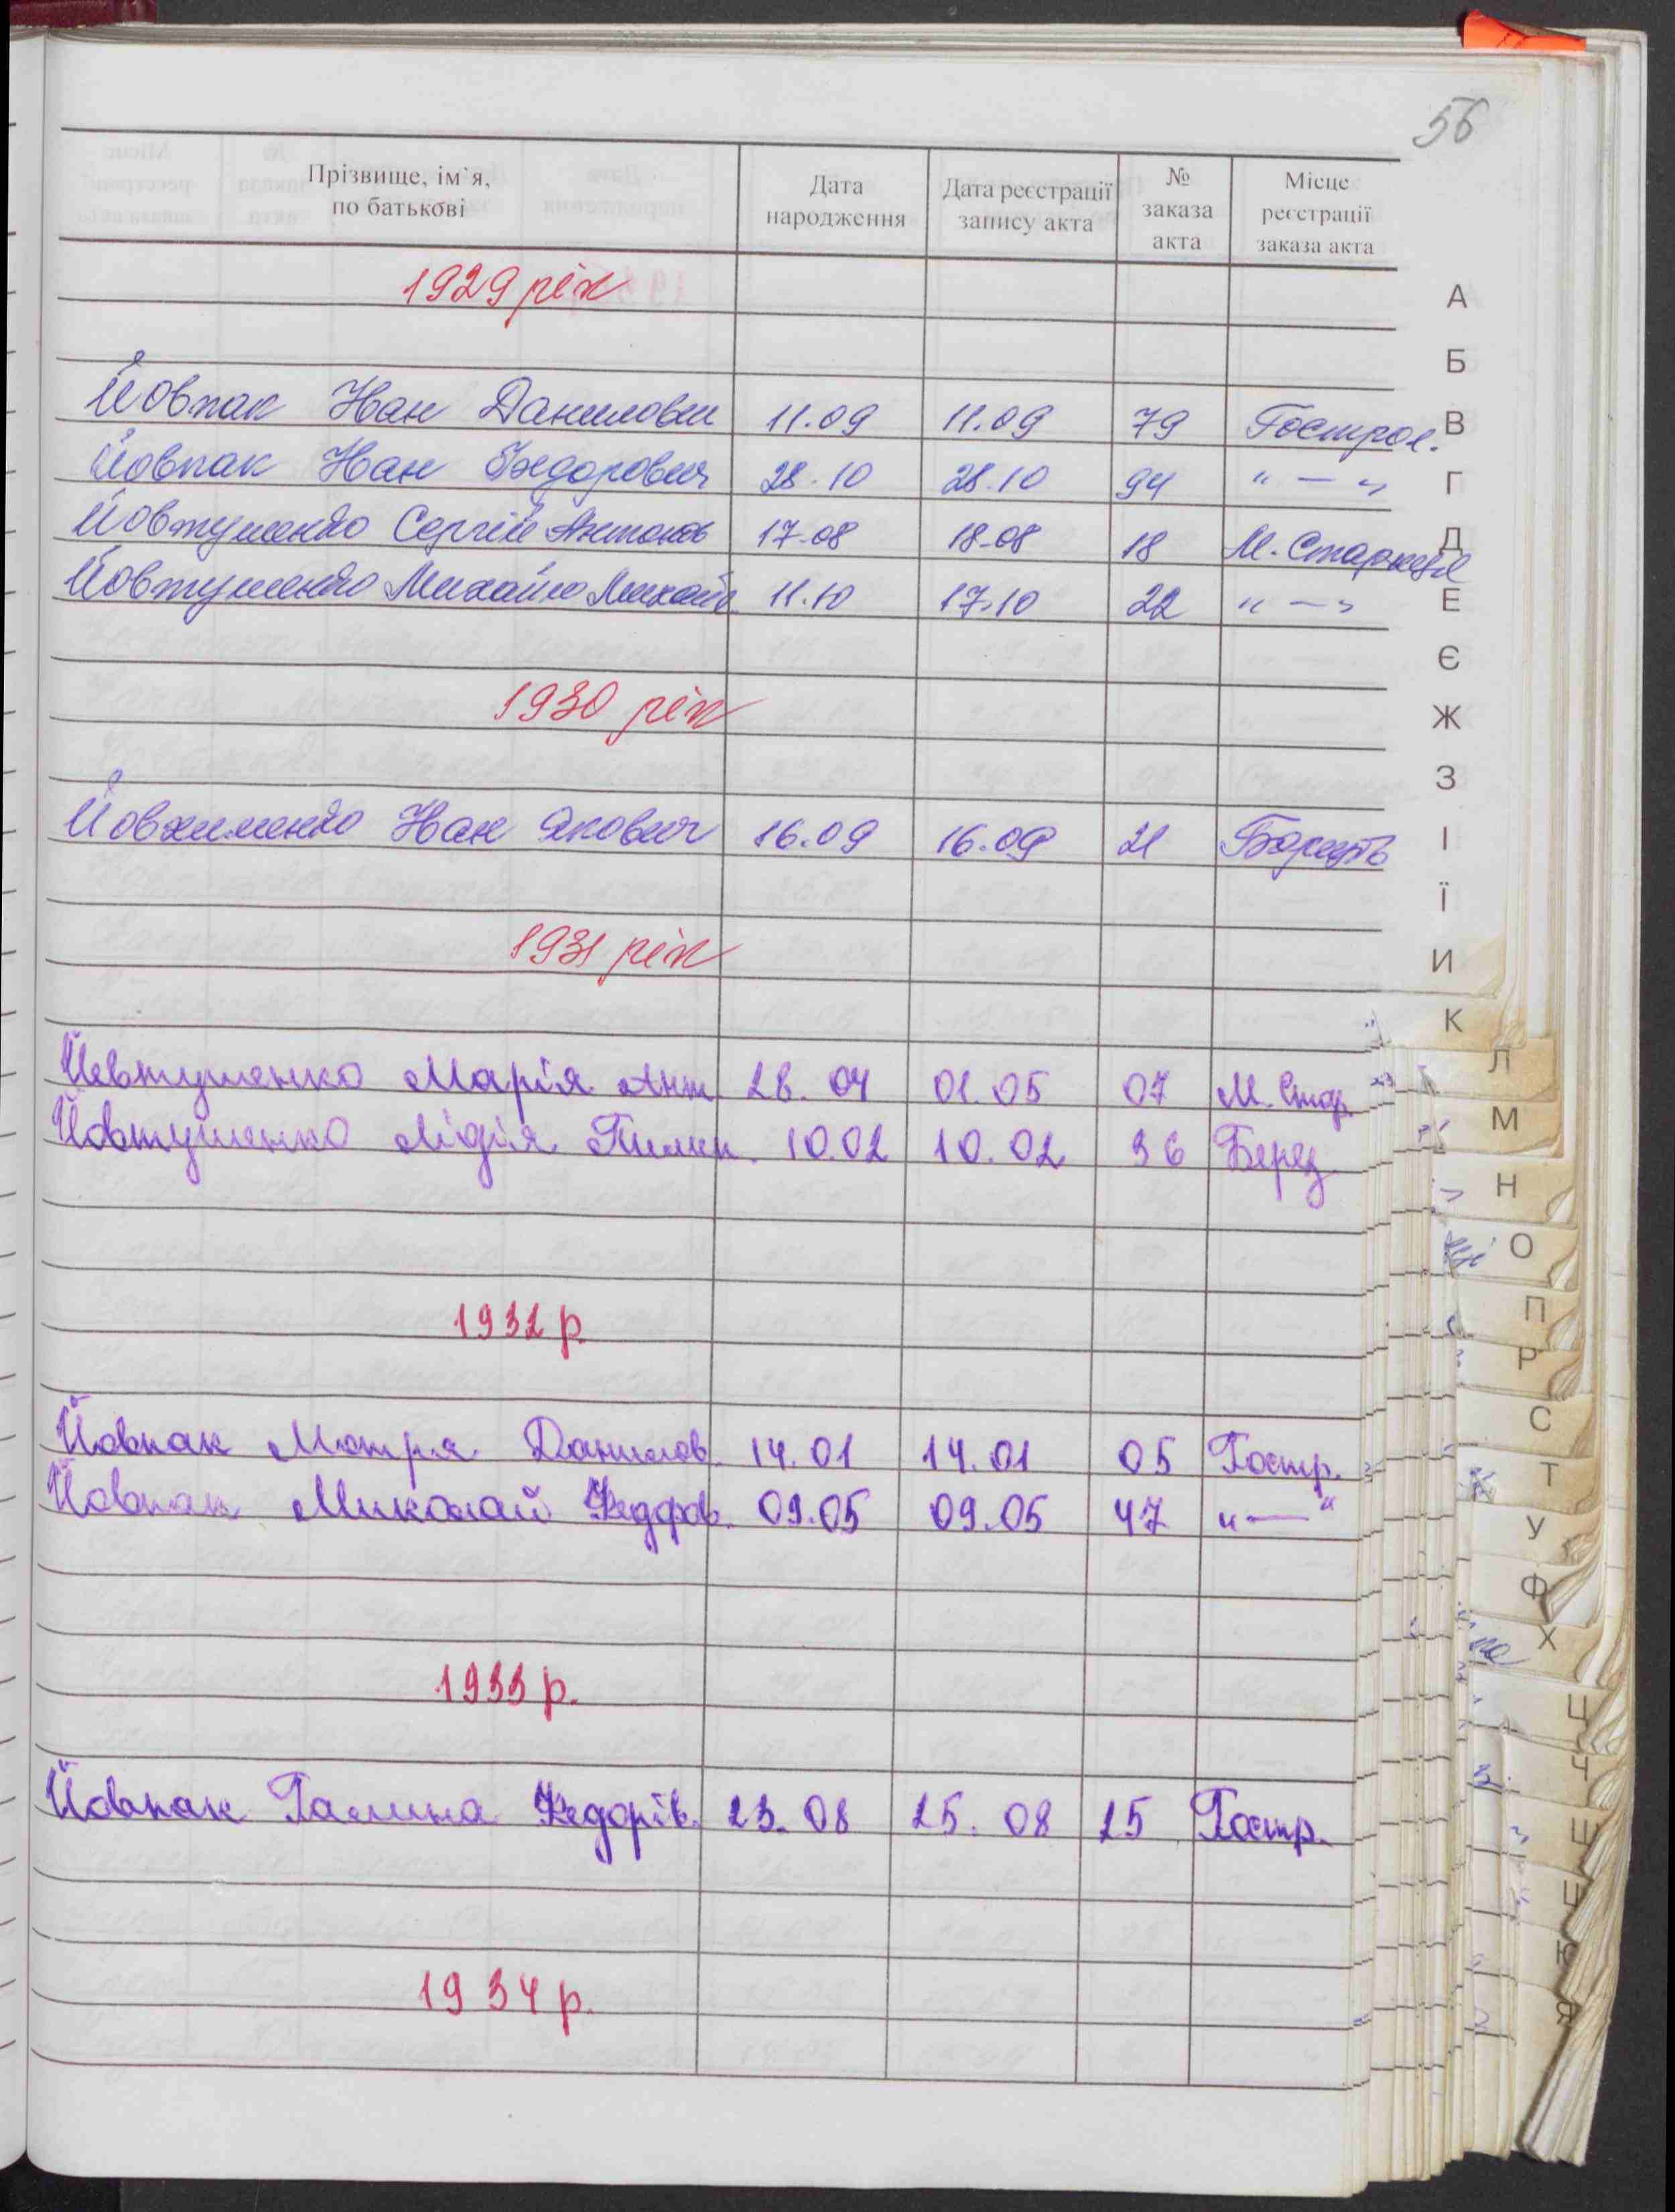 56
Прізвище, ім`я, по батькові | Дата народження | Дата реєстрації запису акта | № заказа акта | Місце реєстрації заказа акта
1929 рік
Йовпак Іван Данилович 11.09 11.09 79 Гострол.
Йовпак Іван Федорович 28.10 28.10 94 " — "
Йовтушенко Сергій Антонов 17.08 18.08 18 М. Старицв
Йовтушенко Михайло Михайл 11.10 17.10 22 " — "
1930 рік
Йовхименко Іван Якович 16.09 16.09 21
1931 рік
Йовтушенко Марія Ант. 28.04 01.05 07 М. Стар.
Йовтушенко Лідія Пилип. 10.02 10.02 36 Берез
1932 р.
Йовпак Мотря Данилов. 14.01 14.01 05 Гостр.
Йовпак Миколай Федоров. 09.05 09.05 47 " — "
1933 р.
Йовпак Галина Федорів. 23.08 25.08 25 Гостр.
1934 р.
А
Б
В
Г
Д
Е
Є
Ж
З
І
Ї
И
К
Л
М
Н
О
П
Р
С
Т
У
Ф
Х
Ц
Ч
Ш
Щ
Ю
Я